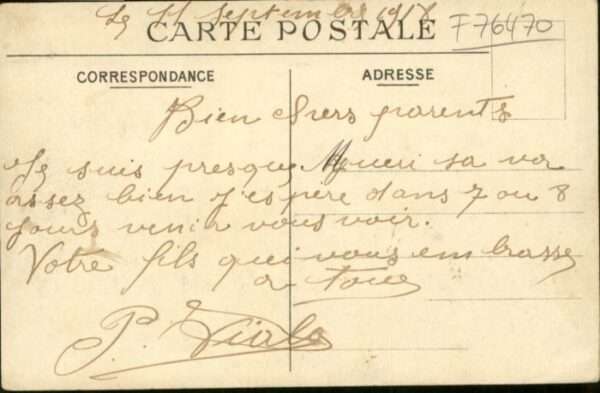 Le 11 septembre 1918
CARTE POSTALE
F 76470
CORRESPONDANCE
ADRESSE
Bien chers parents
Je suis presque guéri sa va
assez bien j'espère dans 7 ou 8
jours venir vous voir.
Votre fils qui vous embrasse
a tous
P. Viala